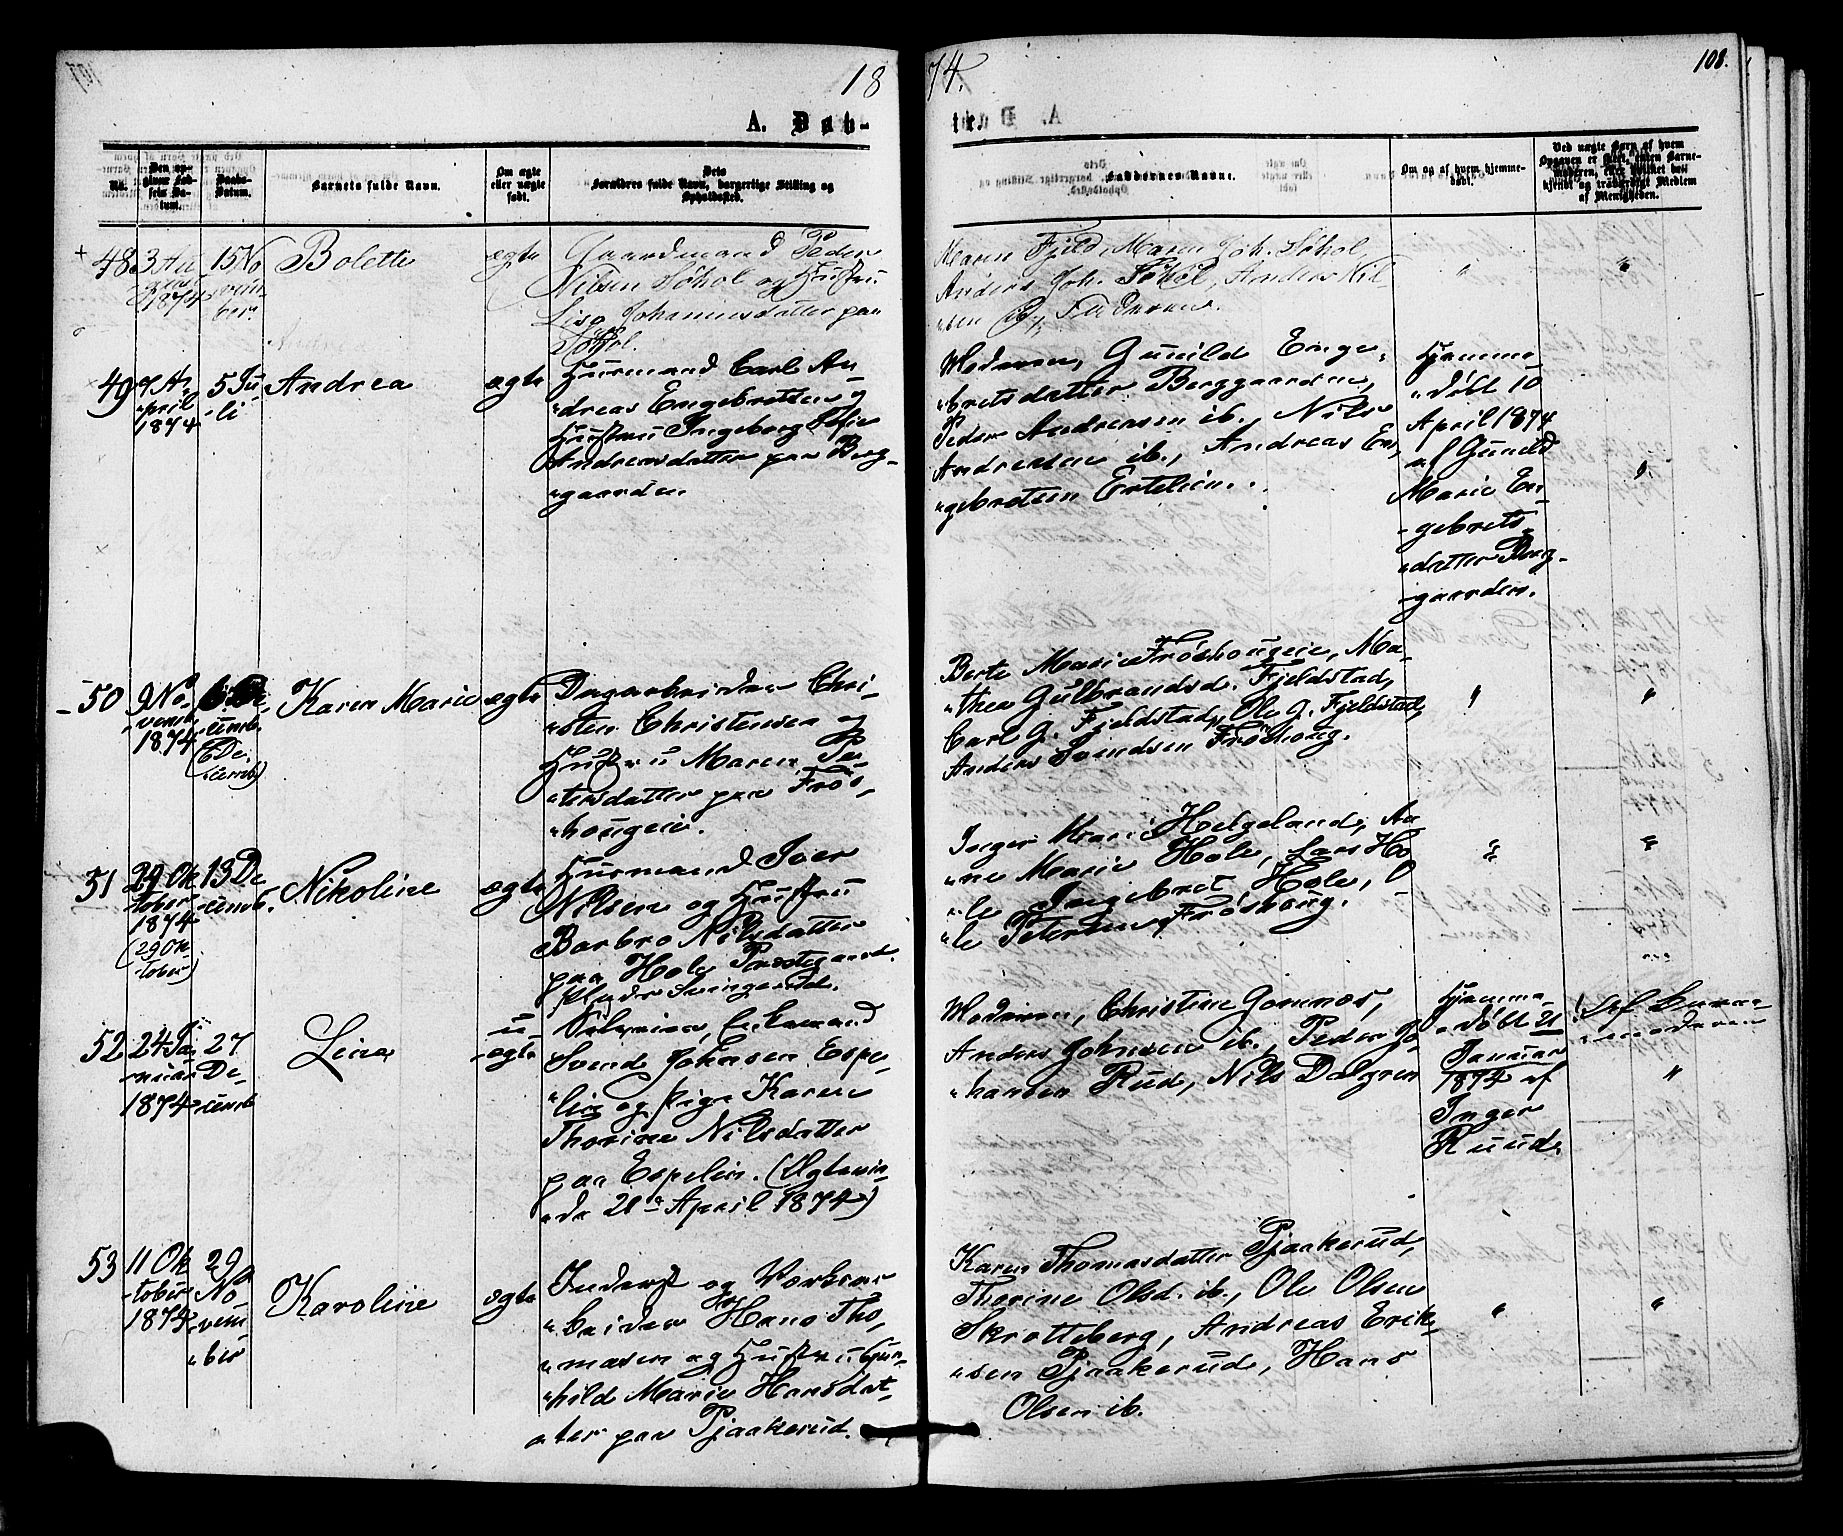 1874.
108.
A. Døbte.
No.
Den opgivne Fødsels Datum.
Daabs-Datum.
Barnets fulde Navn.
Om ægte eller uægte født.
Dets Forældres fulde Navn, borgerlige Stilling og Opholdssted.
Faddernes Navne.
Om og af hvem hjemmedøbt.
Ved uægte Børn af hvem Opgaven er skeet, enten Barnemoderen, eller hvilket vel kjendt og troværdigt Medlem af Menigheden.
48
3 Au
gust
1874
15 No
vem
ber.
Bolette
ægte
Gaardmand Peder
Nilsen Søhol og Hustru
Lisa Johannesdatter paa
Søhol.
Maren Fjeld, Maren Joh. Søhol,
Anders Joh. Søhol, Anders Nil
"sen By, Faderen.
"
"
49
7 A-
"pril
1874
5 Ju
"li
Andrea
ægte
Husmand Carl An
"dreas Engebretsen og
Hustru Ingeborg Sofie
Andreasdatter paa Berg-
"gaarden
Moderen, Gunild Enge-
"bretsdatter Berggaarden,
Peder Andersen ib., Nils
Andersen ib., Andreas En,
"gebretsen Ertelien.
Hjemme
"døbt 10
April 1874
af Gunild
Marie En-
-gebrets-
"datter Berg-
-gaarden.
"
50
9 No-
-vemb.
1874
6 De-
-cemb.
(6 De-
"cemb)
Karen Marie
ægte
Dagarbeider Chri-
"sten Christensen og
Hustru Maren Pe-
"tersdatter paa Frøs,
"hougeie.
Berte Marie Frøshougeie, Ma-
"thea Gulbrandsd. Fjeldstad,
Carl G. Fjeldstad, Ole G. Fjeldstad,
Anders Svendsen Frøshoug.
"
"
51
29 Ok
-tober
1874
(29 Ok
-tober)
13 De
-cemb.
Nikoline
ægte
Husmand Iver
Nilsen og Hustru
Barbro Nilsdatter
paa Hole Præstegaard.
Plads Svingerud.
Inger Marie Helgeland, An
"ne Marie Hole, Lars Ho
"le, Ingebret Hole, O
"le Petersen Frøshoug.
"
"
52
24 Ja
"nuar
1874
27
De-
-cemb
Lina
u-
-ægte
Selveier, Enkemand
Svend Johnsen Espe-
"lien og Pige Karen
Thorine Nilsdatter
paa Espelien. (Ægtevi
"de 21de April 1874)
Moderen, Christine Gomnæs,
Anders Johnsen ib., Peder Jo-
"hansen Rud, Nils Dalgren
Hjemme-
"døbt 21
Januar
1874 af
Inger
Ruud.
Af Barne
"moderen
"
53
11 Ok
-tober
1874
29
No
"vem
"ber
Karoline
ægte
Inderst og Værksar
"beider Hans Tho,
"masen og Hustru Gun-
"hild Marie Hansdat-
"ter paa Pjaakerud.
Karen Thomasdatter Pjaakerud,
Thorine Olsd. ib., Ole Olsen
Skrotteberg, Andreas Erik-
"sen Pjaakerud, Hans
Olsen ib.
"
"